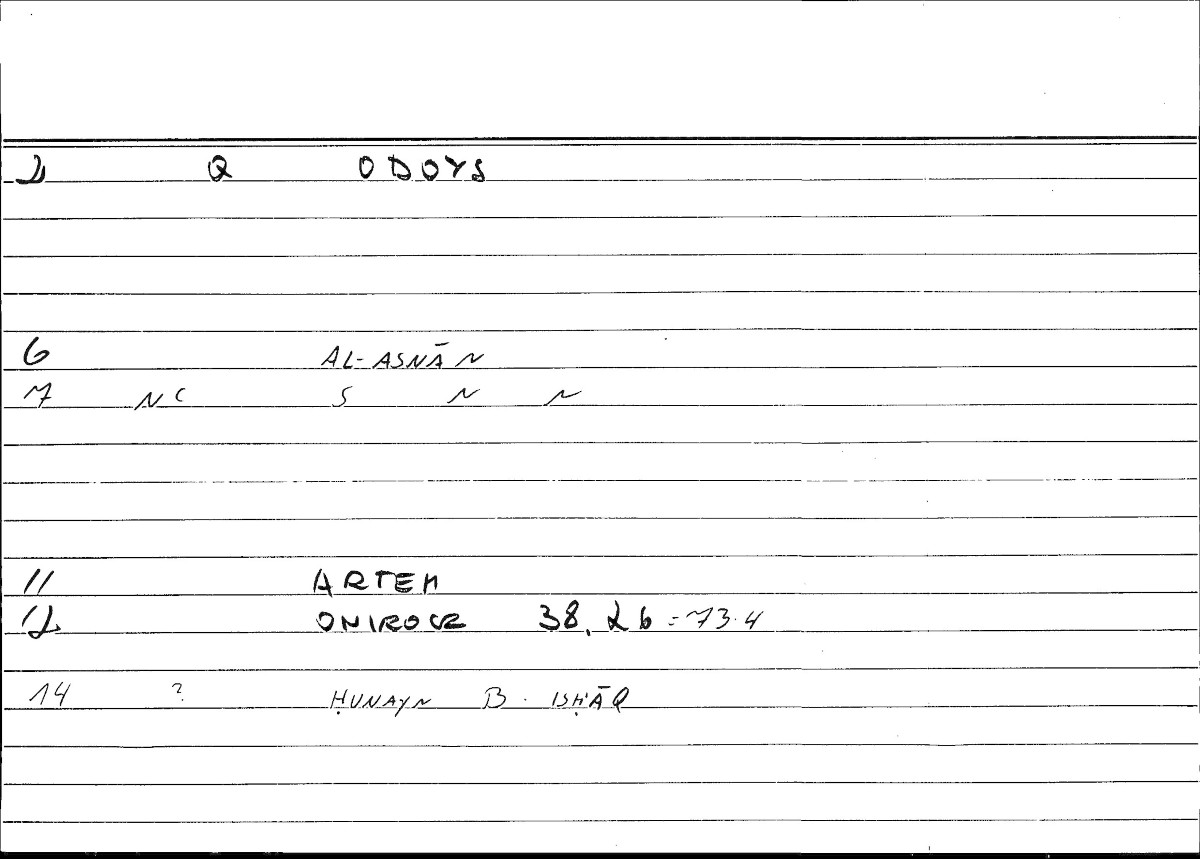 2 Q ODOYS
6 AL-ASNĀN
7 NC S N N
11 ARTEM
12 ONIROCR 38.26 = 73.4
14 ? ḤUNAYN B. ISḤĀQ